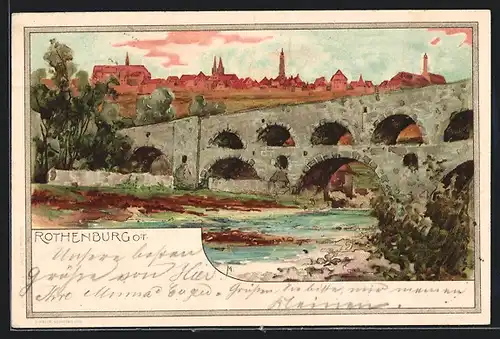 ROTHENBURG O.T.
Unsere besten
Grüße von hier.
Ihre Grüßen Sie bitte mir meinen
Kleinen.
M